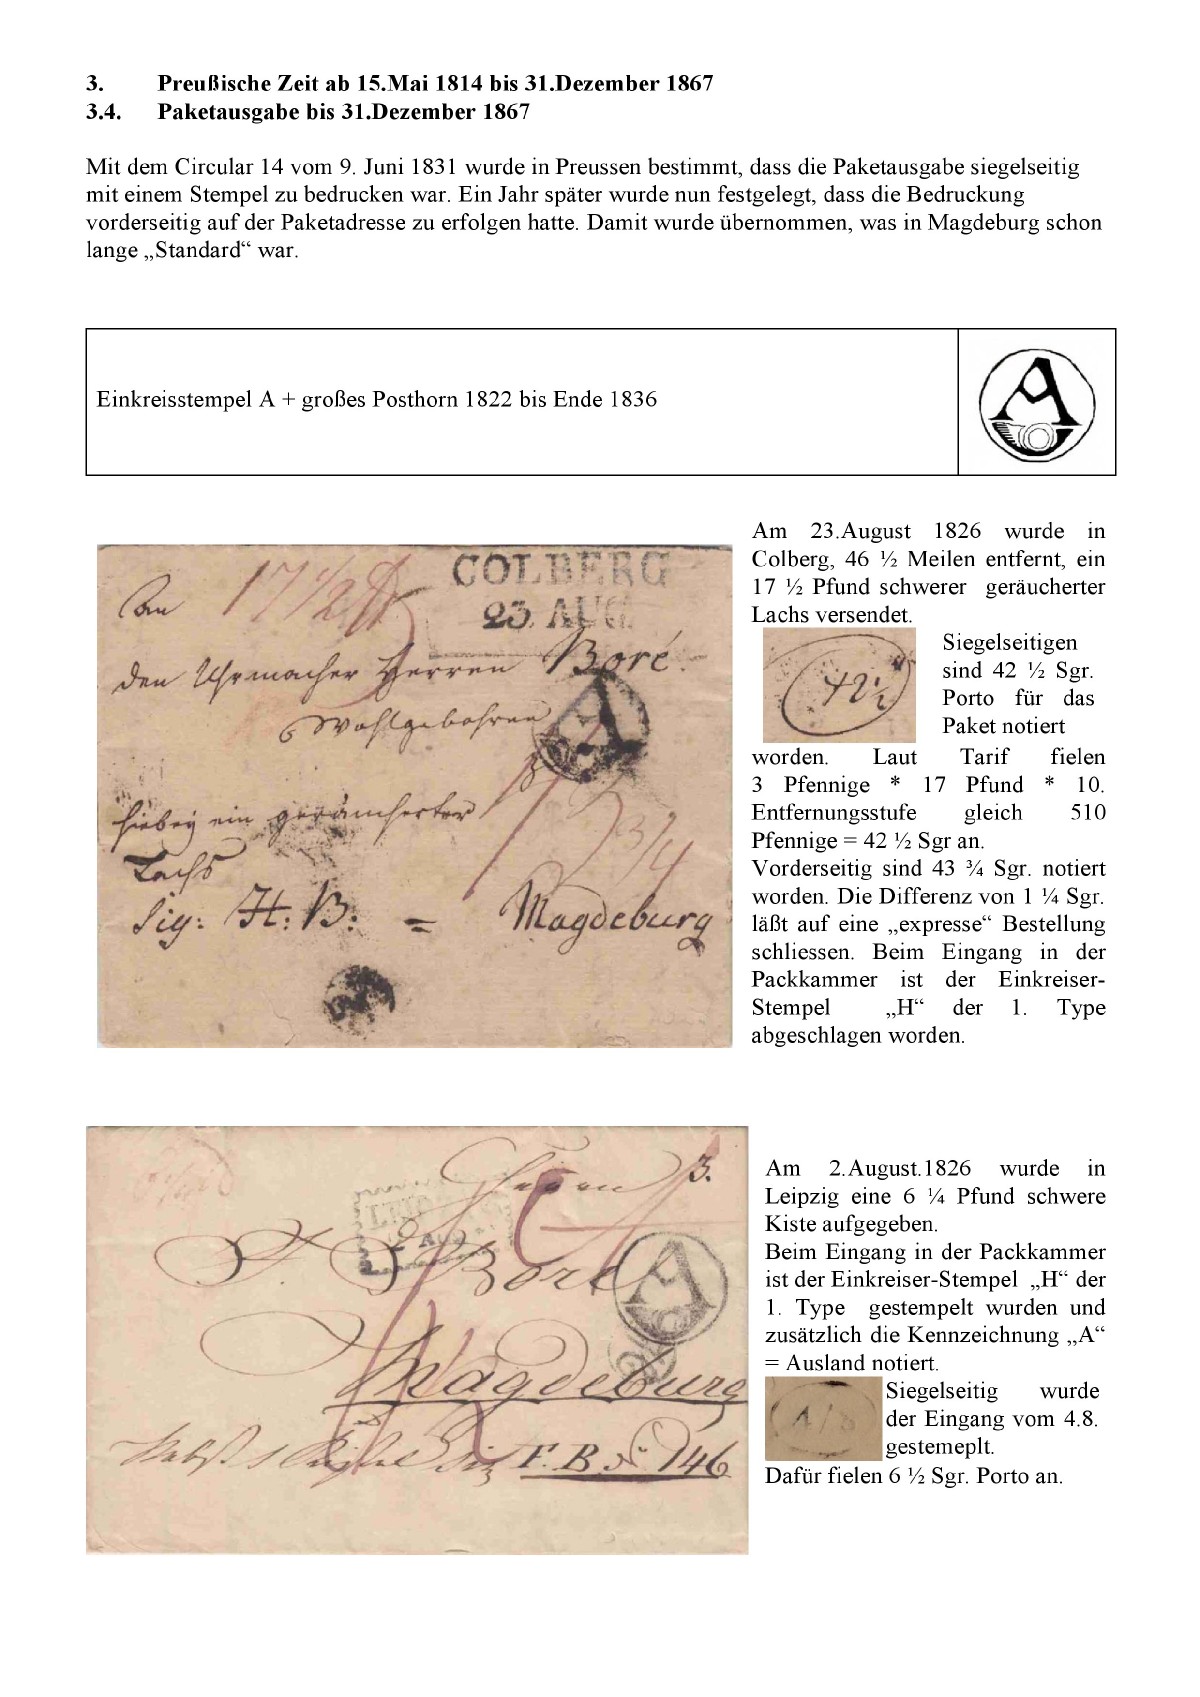 3. Preußische Zeit ab 15.Mai 1814 bis 31.Dezember 1867
3.4. Paketausgabe bis 31.Dezember 1867
Mit dem Circular 14 vom 9. Juni 1831 wurde in Preussen bestimmt, dass die Paketausgabe siegelseitig
mit einem Stempel zu bedrucken war. Ein Jahr später wurde nun festgelegt, dass die Bedruckung
vorderseitig auf der Paketadresse zu erfolgen hatte. Damit wurde übernommen, was in Magdeburg schon
lange „Standard“ war.
Einkreisstempel A + großes Posthorn 1822 bis Ende 1836
A
An 17 1/2
COLBERG
23. AUG.
den Uhrmacher Herren Boré.
Wohlgebohren
A
hiebey ein geräucherter
Lachs
Sig: H: B: = Magdeburg
Am 23.August 1826 wurde in
Colberg, 46 ½ Meilen entfernt, ein
17 ½ Pfund schwerer geräucherter
Lachs versendet.
42½
Siegelseitigen
sind 42 ½ Sgr.
Porto für das
Paket notiert
worden. Laut Tarif fielen
3 Pfennige * 17 Pfund * 10.
Entfernungsstufe gleich 510
Pfennige = 42 ½ Sgr an.
Vorderseitig sind 43 ¾ Sgr. notiert
worden. Die Differenz von 1 ¼ Sgr.
läßt auf eine „expresse“ Bestellung
schliessen. Beim Eingang in der
Packkammer ist der Einkreiser-
Stempel „H“ der 1. Type
abgeschlagen worden.
Herrn 3.
2 AUG
Boré
A
Magdeburg
F. B. N. 146
Am 2.August.1826 wurde in
Leipzig eine 6 ¼ Pfund schwere
Kiste aufgegeben.
Beim Eingang in der Packkammer
ist der Einkreiser-Stempel „H“ der
1. Type gestempelt wurden und
zusätzlich die Kennzeichnung „A“
= Ausland notiert.
Siegelseitig wurde
der Eingang vom 4.8.
gestemeplt.
Dafür fielen 6 ½ Sgr. Porto an.